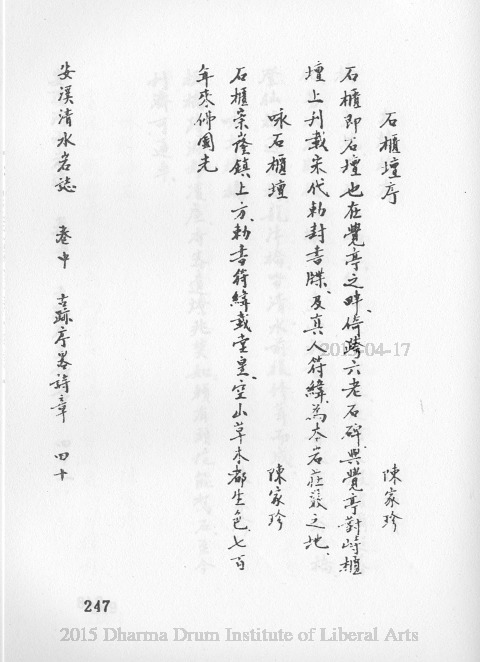 石櫃壇序
陳家珍
石櫃即石壇也在覺亭之畔倚跨六老石碑與覺亭對峙櫃
壇上刋載宋代勅封書牒及真人符緯為本岩莊嚴之地
咏石櫃壇
陳家珍
石櫃崇隆鎮上方勅書符緯載堂皇空山草木都生色七百
年來佛國光
安溪清水岩誌 卷中 古蹟序畧詩章 四十
247
2015-04-17
2015 Dharma Drum Institute of Liberal Arts